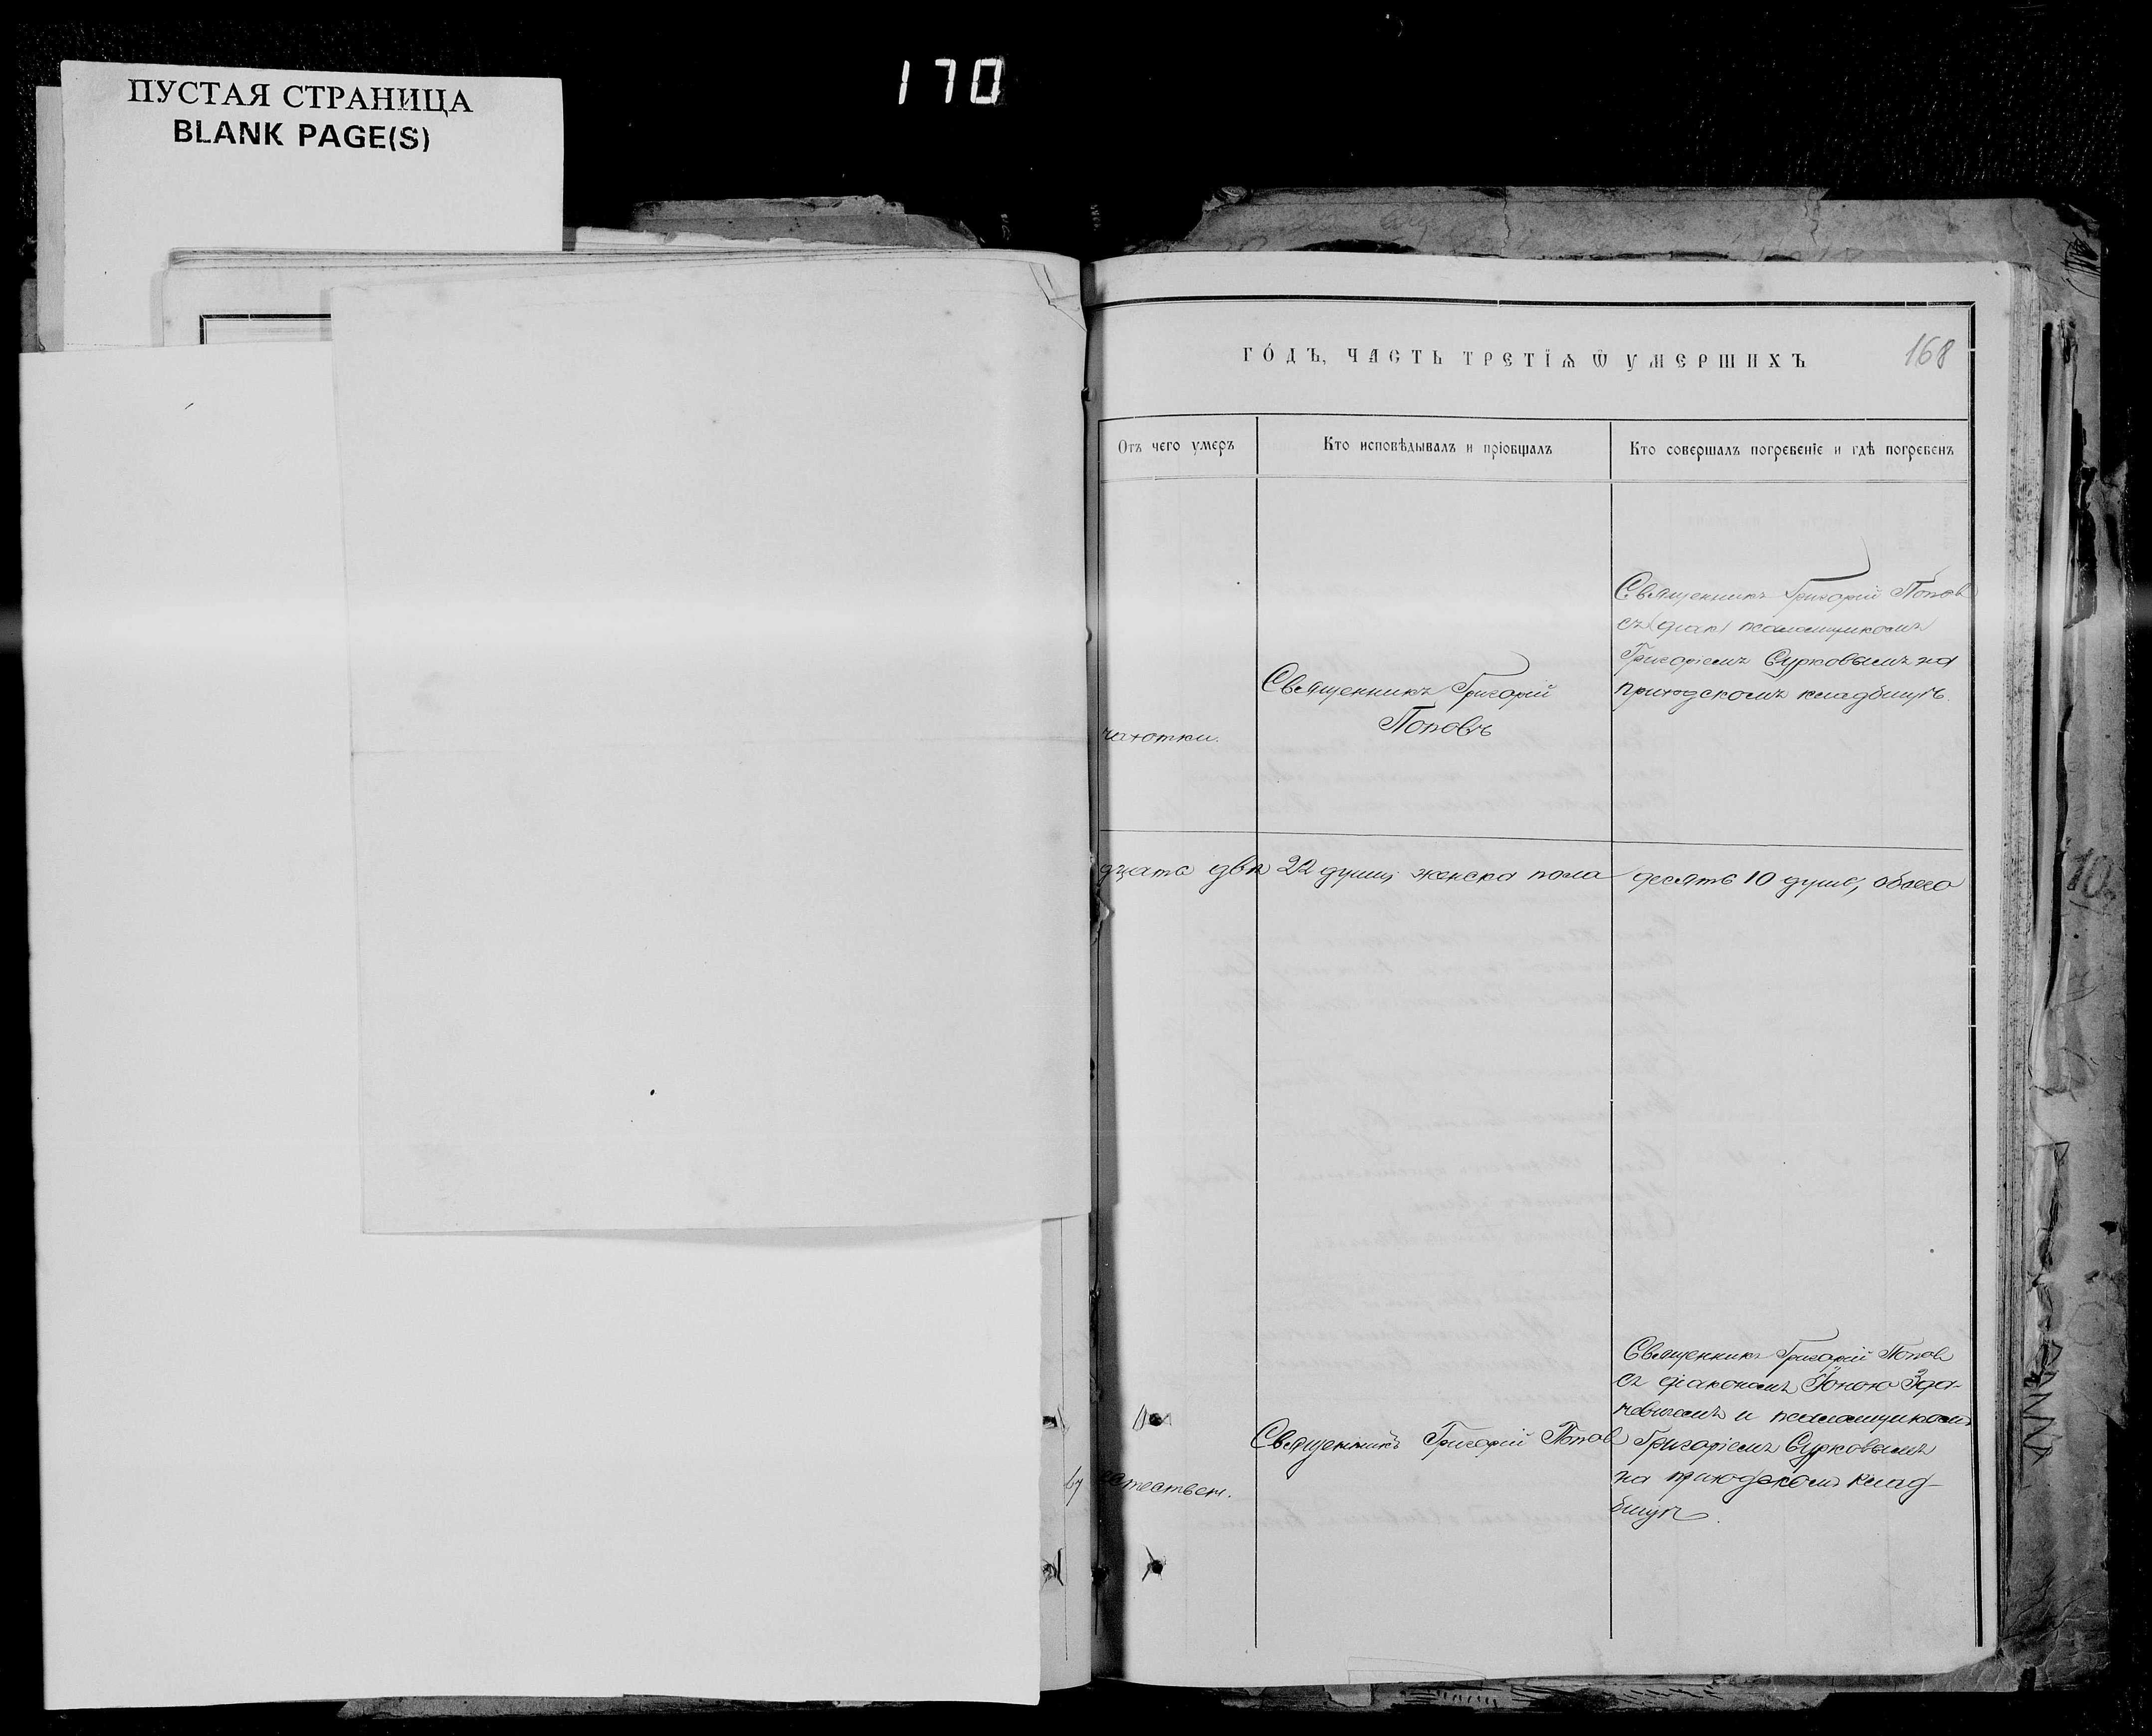 170
ПУСТАЯ СТРАНИЦА
BLANK PAGE(S)
ГО́ДЪ, ЧАСТЬ ТРЕТІѦ Ѿ УМЕРШИХЪ
168
Отъ чего умеръ
Кто исповѣдывалъ и пріобщалъ
Кто совершалъ погребеніе и гдѣ погребенъ
чахотки.
Священникъ Григорій
Поповъ
Священникъ Григорій Попов
съ псаломщикомъ
Григоріемъ Сурковымъ на
приходскомъ кладбищѣ.
дцать два 22 души, женска пола десять 10 душъ, обоего
естествен.
Священникъ Григорій Попов
Священникъ Григорій Попов
съ діакономъ Іоною Зда-
чевичемъ и псаломщикомъ
Григоріемъ Сурковымъ
на приходскомъ клад-
бищѣ.
10